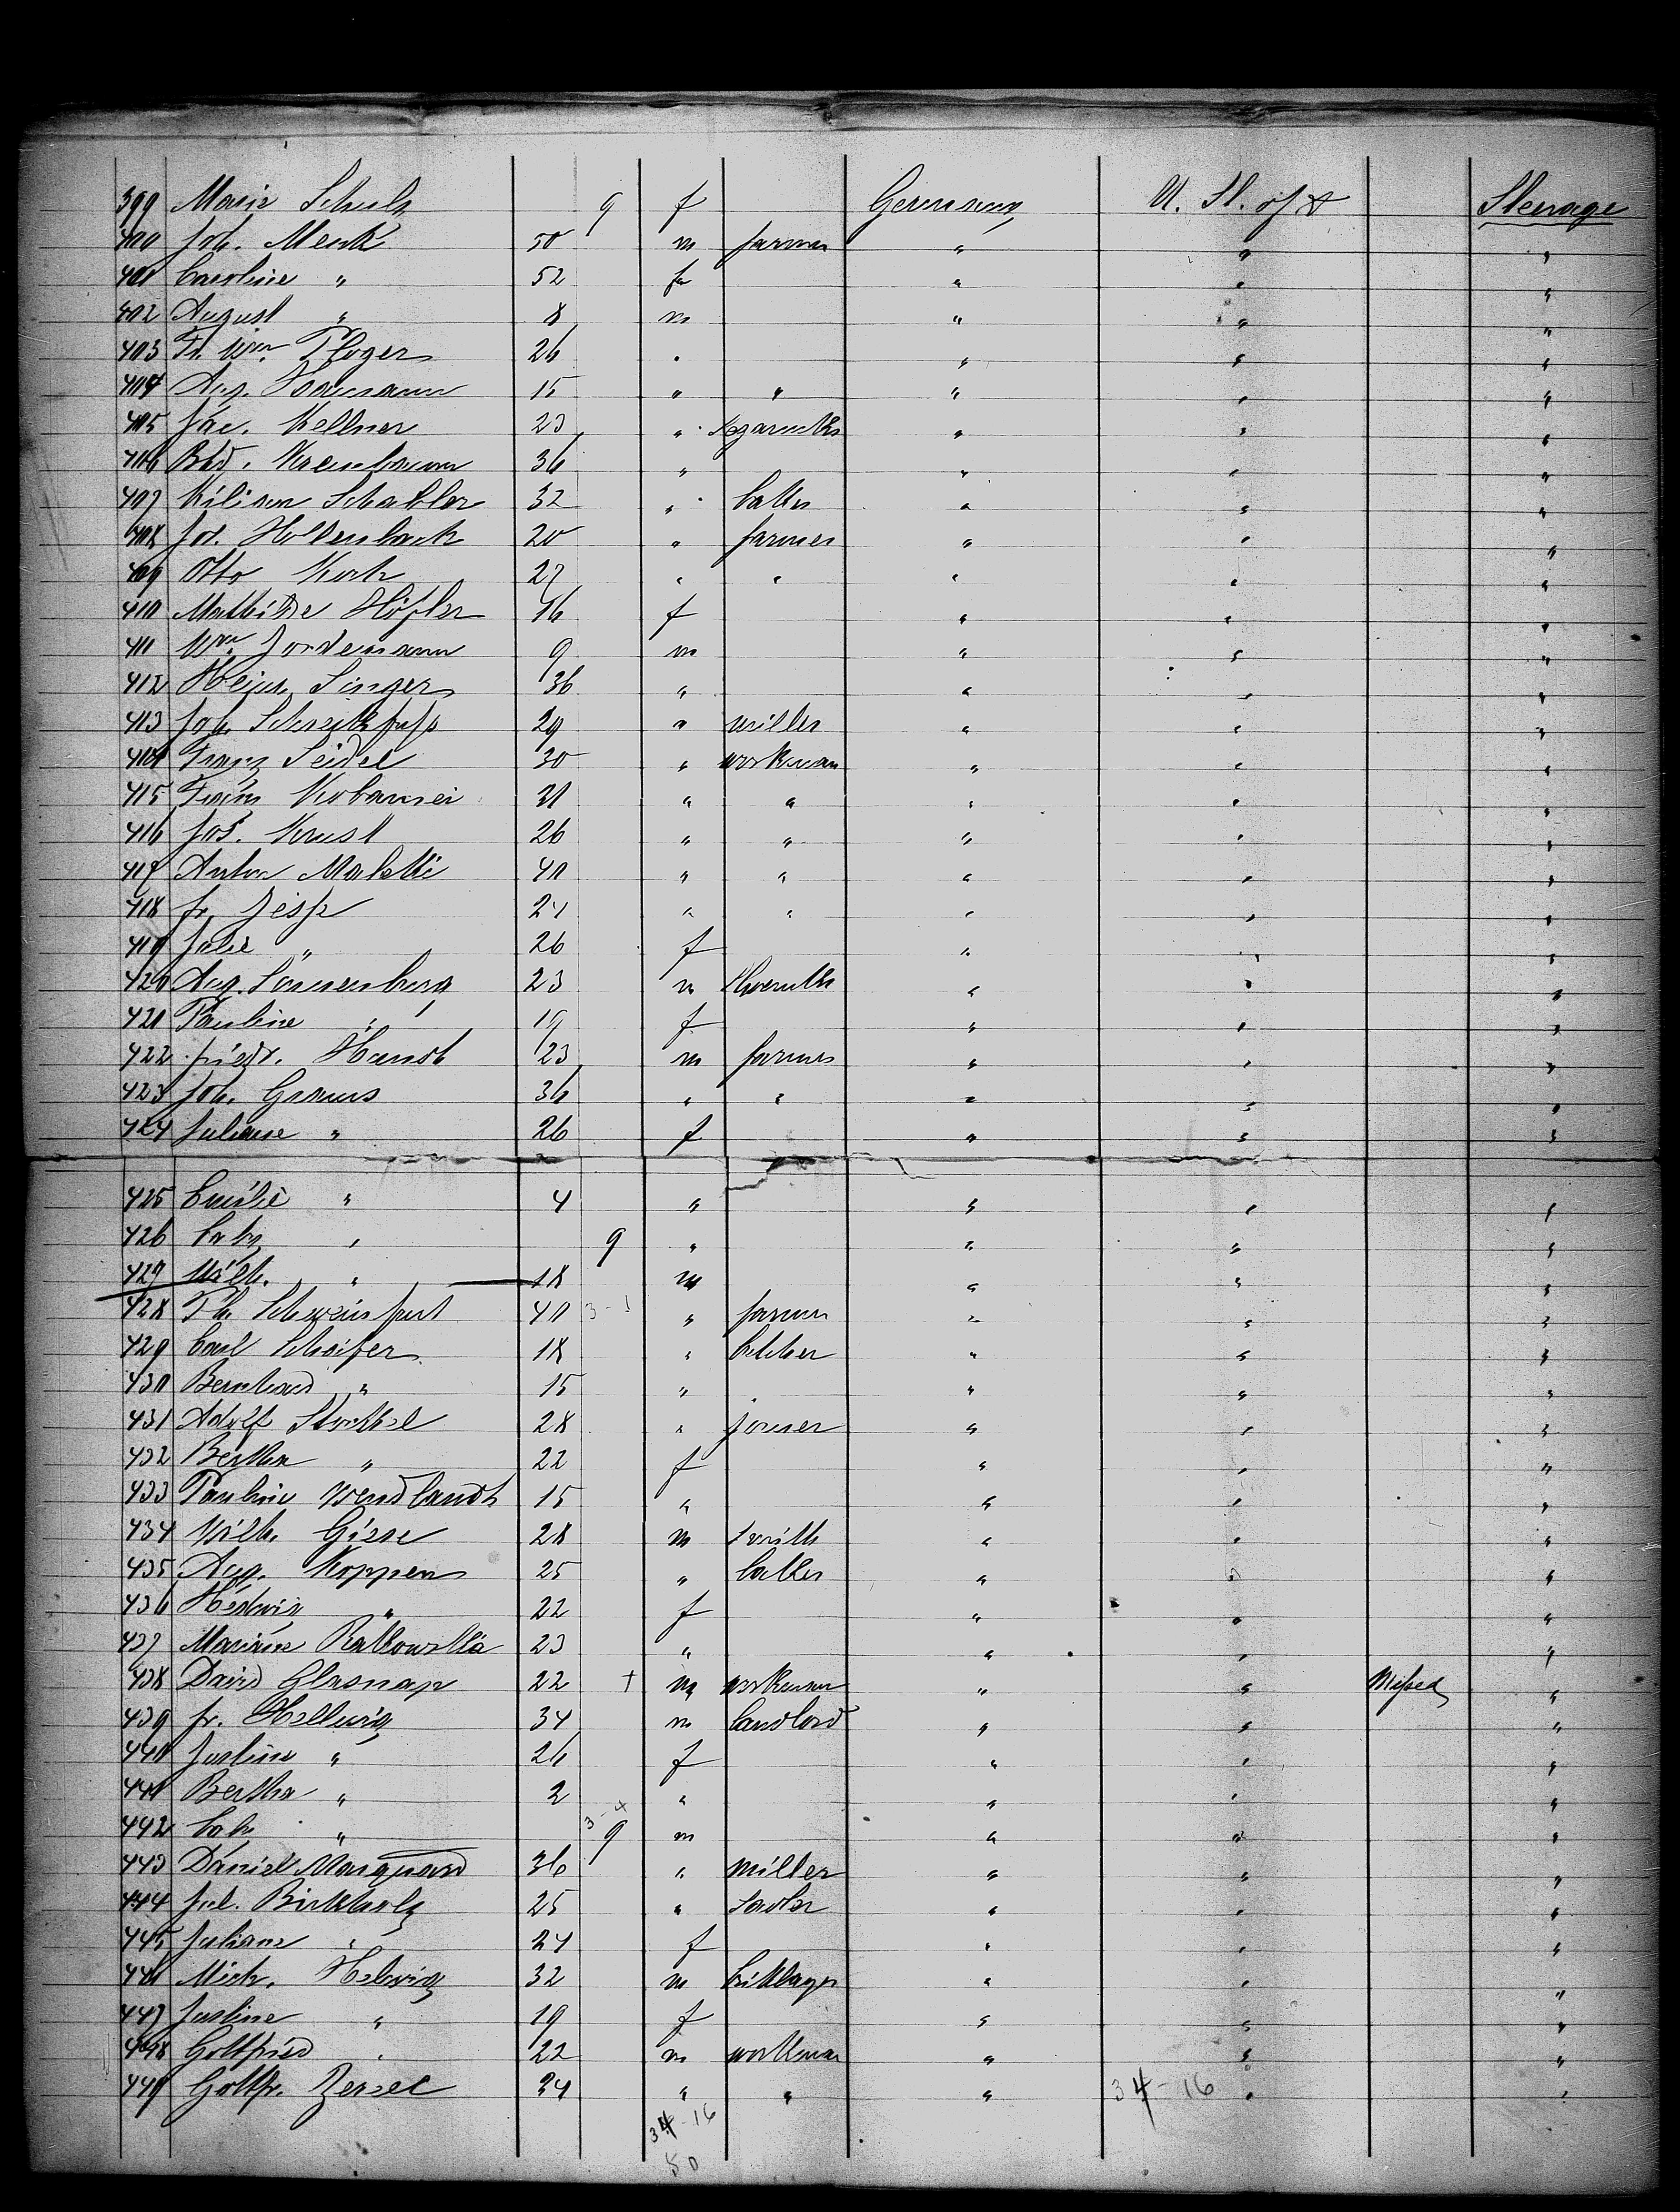 399 Marie Schulz 9 f Germany U. St. of A Steerage
400 Joh. Menk 50 m farmer " " "
401 Caroline " 52 f " " "
402 August " 8 m " " "
403 Fr. Wm. Ploger 26 " " " "
404 Aug. 15 " " " " "
405 Jac. Kellner 23 " " " "
406 36 " " " "
407 Kilian Schabler 32 " " " "
408 Jos. Hollenbach 20 " farmer " " "
409 Otto Koch 27 " " " " "
410 Mathilde Höfler 16 f " " "
411 Wm. Jordemann 9 m " " "
412 Heinr. Singer 36 " " " "
413 Joh. 29 " miller " " "
414 Franz Seidel 30 " workman " " "
415 Franz 21 " " " " "
416 Jos. Krust 26 " " " " "
417 Anton 40 " " " " "
418 fr. 24 " " " " "
419 Julie " 26 f " " "
420 Aug. Sonnenburg 23 m " " "
421 Pauline " 19 f " " "
422 friedr. 23 m farmer " " "
423 Joh. Grams 36 " " " " "
424 Juliane " 26 f " " "
425 Emilie " 4 " " " "
426 baby " 9 " " " "
427 Wilh. " 18 m " " "
428 Ph. Schweinfurt 40 3-1 " farmer " " "
429 Carl Schäfer 18 " butcher " " "
430 Bernhard " 15 " " " "
431 Adolf 28 " joiner " " "
432 Bertha " 22 f " " "
433 Pauline Wendlandt 15 " " " "
434 Wilh. Giese 28 m smith " " "
435 Aug. Koppen 25 " " " "
436 Hedwig " 22 f " " "
437 23 " " " "
438 David Glasnap 22 + m workman " " Missed "
439 fr. Hellwig 34 m landlord " " "
440 Justine " 26 f " " "
441 Bertha " 2 " " " "
442 baby " 3-4 9 m " " "
443 Daniel Marquard 36 " miller " " "
444 Jul. Birkholz 25 " sadler " " "
445 Juliane " 24 f " " "
446 Mich. Helwig 32 m " " "
447 Justine " 19 f " " "
448 Gottfried " 22 m workman " " "
449 Gottfr. 24 " " " 34-16 " "
34-16
50